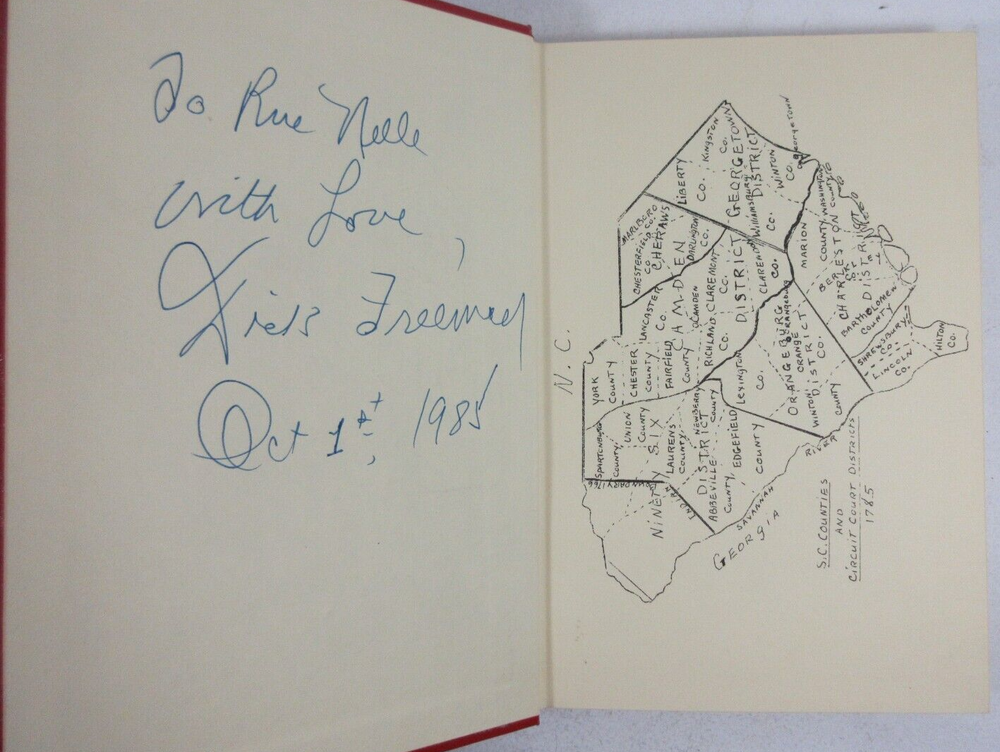 To Rue Nelle
With Love,
Freeman
Oct 1st, 1985
N.C.
YORK
COUNTY
CHESTER
COUNTY
LANCASTER
Co.
FAIRFIELD
COUNTY
CAMDEN
DISTRICT
RICHLAND
CLAREMONT
Co.
CLARENDON
Co.
CHESTERFIELD Co.
MARLBORO
Co.
CHERAWS
DARLINGTON
Co.
LIBERTY
Co.
KINGSTON
Co.
GEORGETOWN
DISTRICT
WILLIAMSBURG
Co.
WINTON
Co.
Georgetown
SPARTANBURG
COUNTY
UNION
COUNTY
NINETY SIX
DISTRICT
LAURENS
COUNTY
NEWBERRY
COUNTY
ABBEVILLE
COUNTY
EDGEFIELD
COUNTY
LEXINGTON
Co.
ORANGEBURG
DISTRICT
ORANGEBURG
ORANGE
Co.
WINTON
COUNTY
MARION
COUNTY
WASHINGTON
COUNTY
CHARLESTON
DISTRICT
BARTHOLOMEW
COUNTY
SHREWSBURY
Co.
LINCOLN
Co.
HILTON
Co.
BOUNDARY 1766
SAVANNAH
RIVER
GEORGIA
S.C. COUNTIES
AND
CIRCUIT COURT DISTRICTS
1785